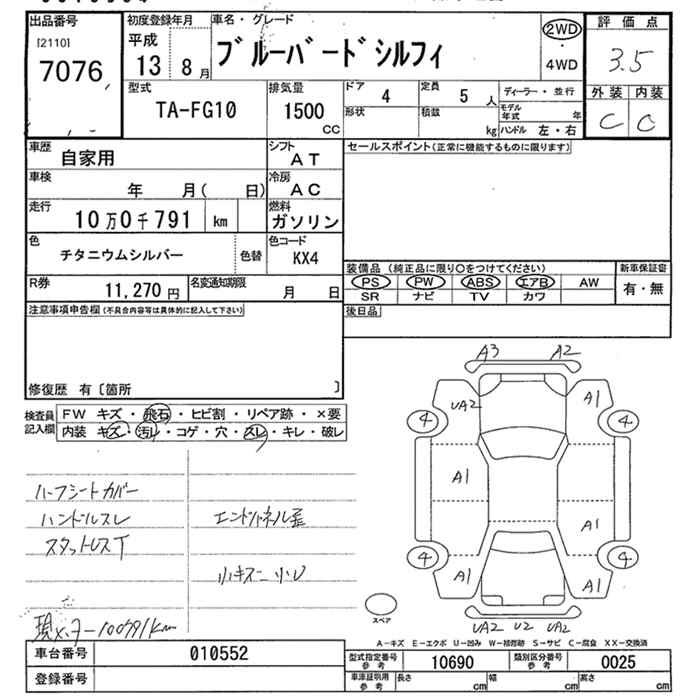 出品番号
[2110]
7076
初度登録年月
平成
13 8月
車名・グレード
ブルーバードシルフィ
2WD
・
4WD
評価点
3.5
外装 内装
C C
型式
TA-FG10
排気量
1500
CC
ドア
4
形状
定員
5 人
積数
kg
ディーラー・並行
モデル年式 年
ハンドル 左・右
車歴
自家用
シフト
AT
車検
年 月( 日)
冷房
AC
走行
10万0千791 km
燃料
ガソリン
色
チタニウムシルバー
色替
色コード
KX4
R券
11,270 円
名変通知期限
月 日
セールスポイント(正常に機能するものに限ります)
装備品 (純正品に限り○をつけてください)
PS PW ABS エアB AW
SR ナビ TV カワ
新車保証書
有・無
後日品
注意事項申告欄(不具合内容等は具体的に記入して下さい)
修復歴 有〔箇所 〕
検査員
記入欄
FW キズ・飛石・ヒビ割・リペア跡・×要
内装 キズ・汚レ・コゲ・穴・スレ・キレ・破レ
ハーフシートカバー
ハンドルスレ
スタットレスT
エンドパネル歪
小キズ 小凹
現メーター100791km
A3 A2
UA2 A1
4 4
A1
A1
4 4
A1 A1
UA2 U2 UA2
スペア
A-キズ E-エクボ U-凹み W-補修跡 S-サビ C-腐食 XX-交換済
車台番号
010552
登録番号
型式指定番号
参考
10690
類別区分番号
参考
0025
車庫証明用
参考
長さ cm
幅 cm
高さ cm